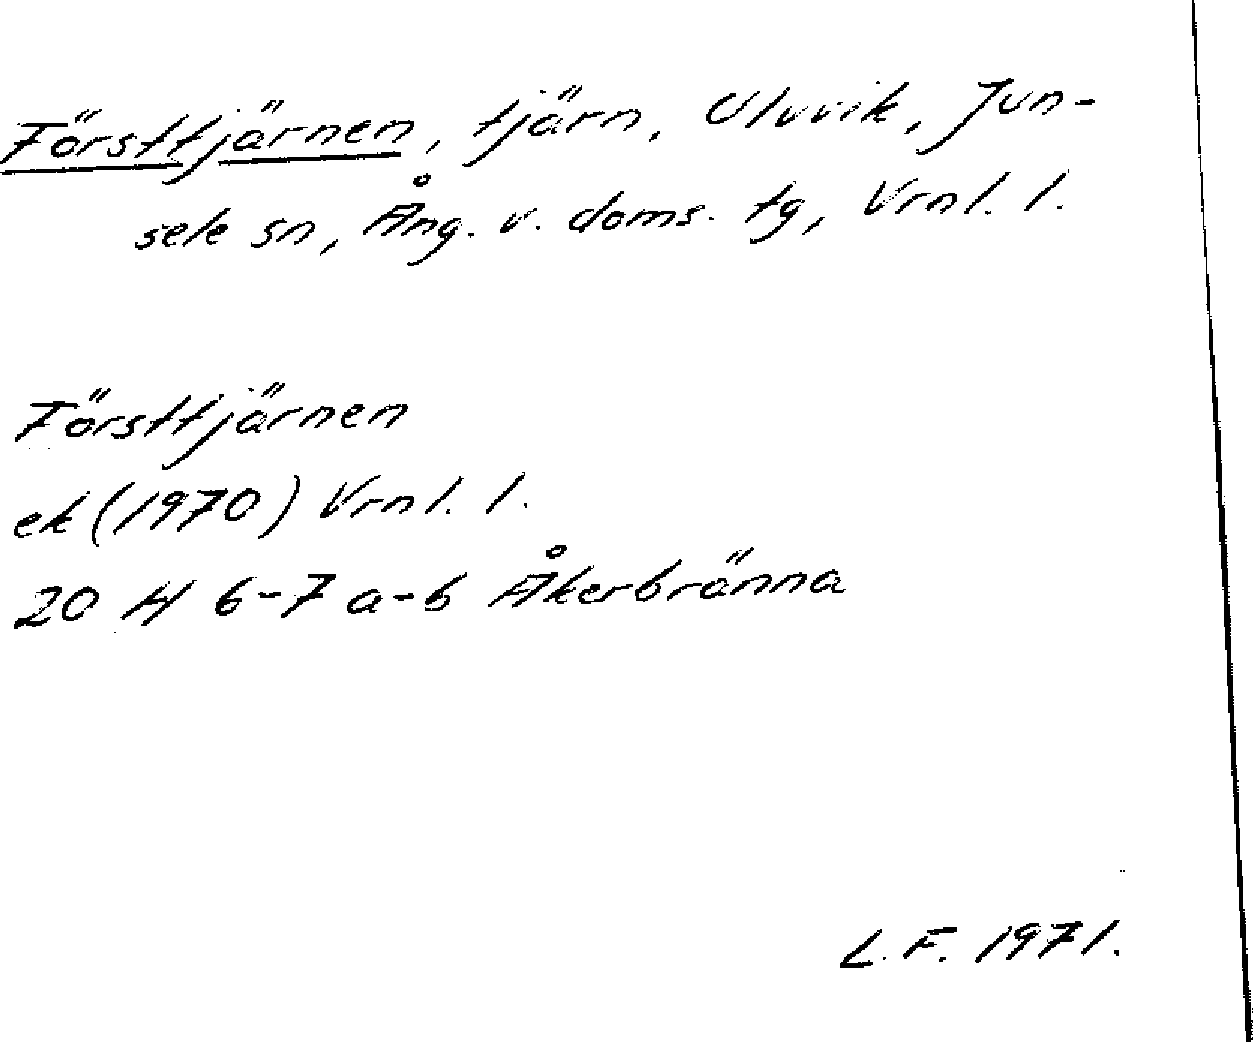 Försttjärnen, tjärn, Uluvik, Jun-
sele sn, Ång. v. doms. tg, Vrnl. l.
Försttjärnen
ek (1970) Vrnl. l.
20 H 6-7 a-b Åkerbränna
L. F. 1971.